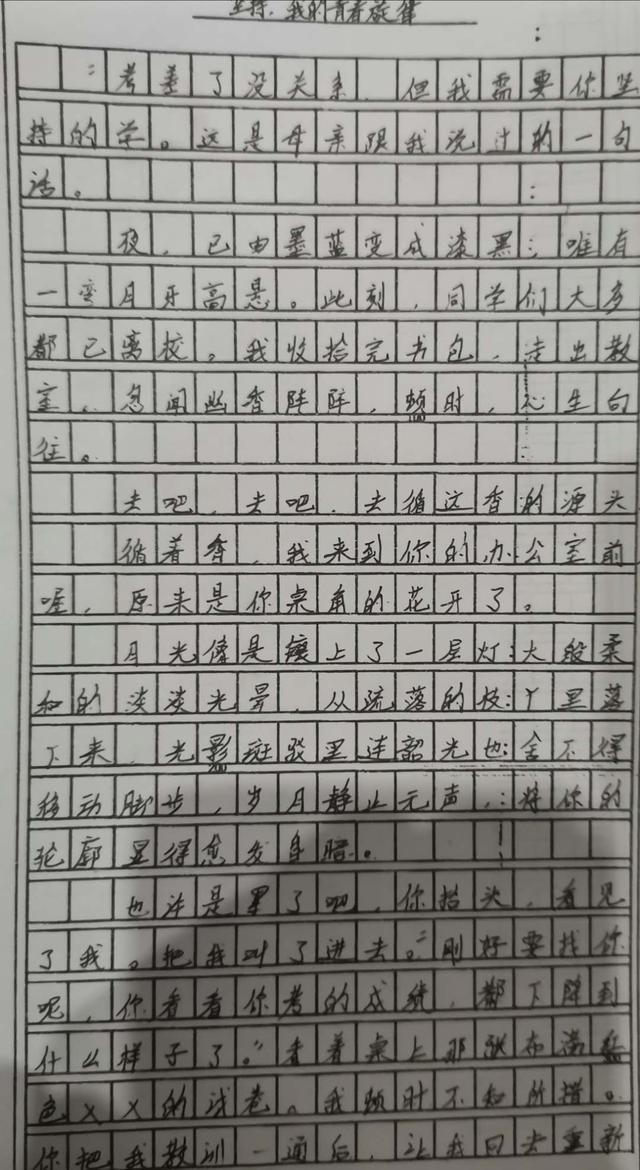 坚持,我的青春旋律
:考差了没关系,但我需要你坚
持的学。这是母亲跟我说过的一句
话。
夜,已由墨蓝变成漆黑;唯有
一弯月牙高悬。此刻,同学们大多
都已离校。我收拾完书包,走出教
室,忽闻幽香阵阵,顿时,心生向
往。
去吧,去吧,去循这香的源头
循着香,我来到你的办公室前
喔,原来是你桌角的花开了。
月光像是镀上了一层灯:大段柔
和的淡淡光晕,从疏落的枝丫里落
下来,光影斑驳里连韶光也舍不得
移动脚步,岁月静止无声,将你的
轮廓显得愈发鲜
也许是累了吧,你抬头,看见
了我。把我叫了进去。“刚好要找你
呢,你看看你考的成绩,都下降到
什么样子了。”看着桌上那张布满红
色××的试卷。我顿时不知所措。
你把我教训一通后,让我回去重新